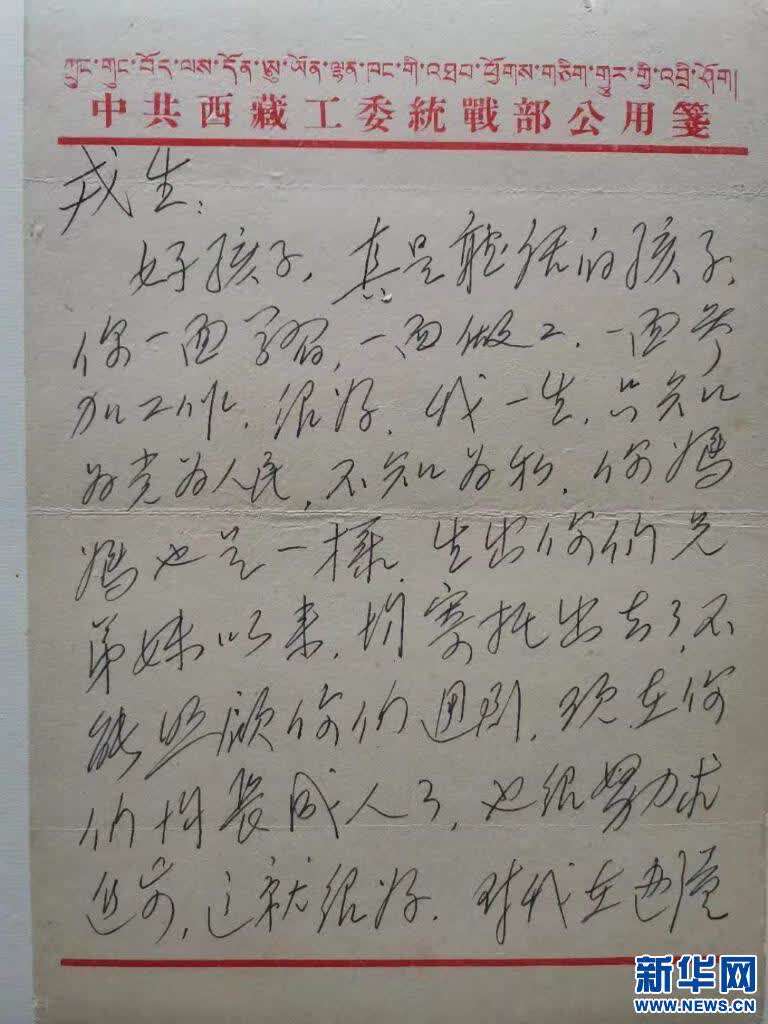 ཀྲུང་གུང་བོད་ལས་དོན་ཨུ་ཡོན་ལྷན་ཁང་གི་འཐབ་ཕྱོགས་གཅིག་གྱུར་གྱི་འབྲི་ཤོག།
中共西藏工委統戰部公用箋
戎生：
好孩子，真是聽话的孩子，
你一面学習，一面做工，一面参
加工作，很好，我一生，只知
为党为人民，不知为私，你媽
媽也是一樣，生出你们兄
弟妹以来，均寄托出去了，不
能照顾你们週到，现在你
们均長成人了，也很努力求
進步，这就很好，对我在边境
新华网
WWW.NEWS.CN